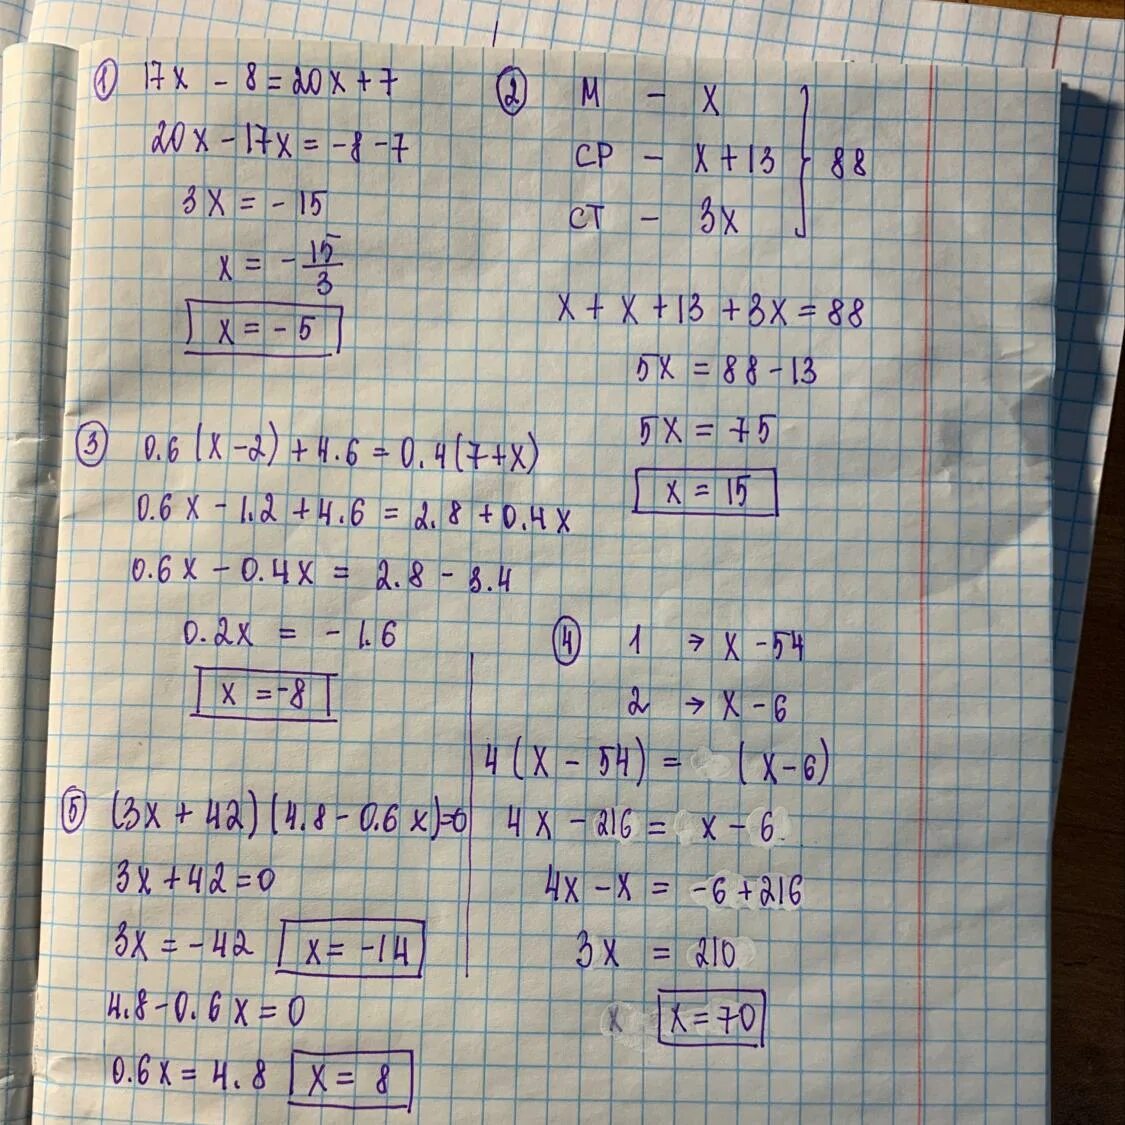 ① 17x - 8 = 20x + 7
20x - 17x = -8 - 7
3x = - 15
x = - 15/3
x = - 5
② М - x
СР - x + 13 } 88
СТ - 3x
x + x + 13 + 3x = 88
5x = 88 - 13
5x = 75
x = 15
③ 0.6 (x - 2) + 4.6 = 0.4 (7 + x)
0.6 x - 1.2 + 4.6 = 2.8 + 0.4 x
0.6 x - 0.4 x = 2.8 - 3.4
0.2x = - 1.6
x = -8
④ 1 → x - 54
2 → x - 6
4 (x - 54) = (x - 6)
4 x - 216 = x - 6
4x - x = -6 + 216
3x = 210
x x = 70
⑤ (3x + 42) (4.8 - 0.6 x) = 0
3x + 42 = 0
3x = - 42 x = -14
4.8 - 0.6 x = 0
0.6 x = 4.8 x = 8